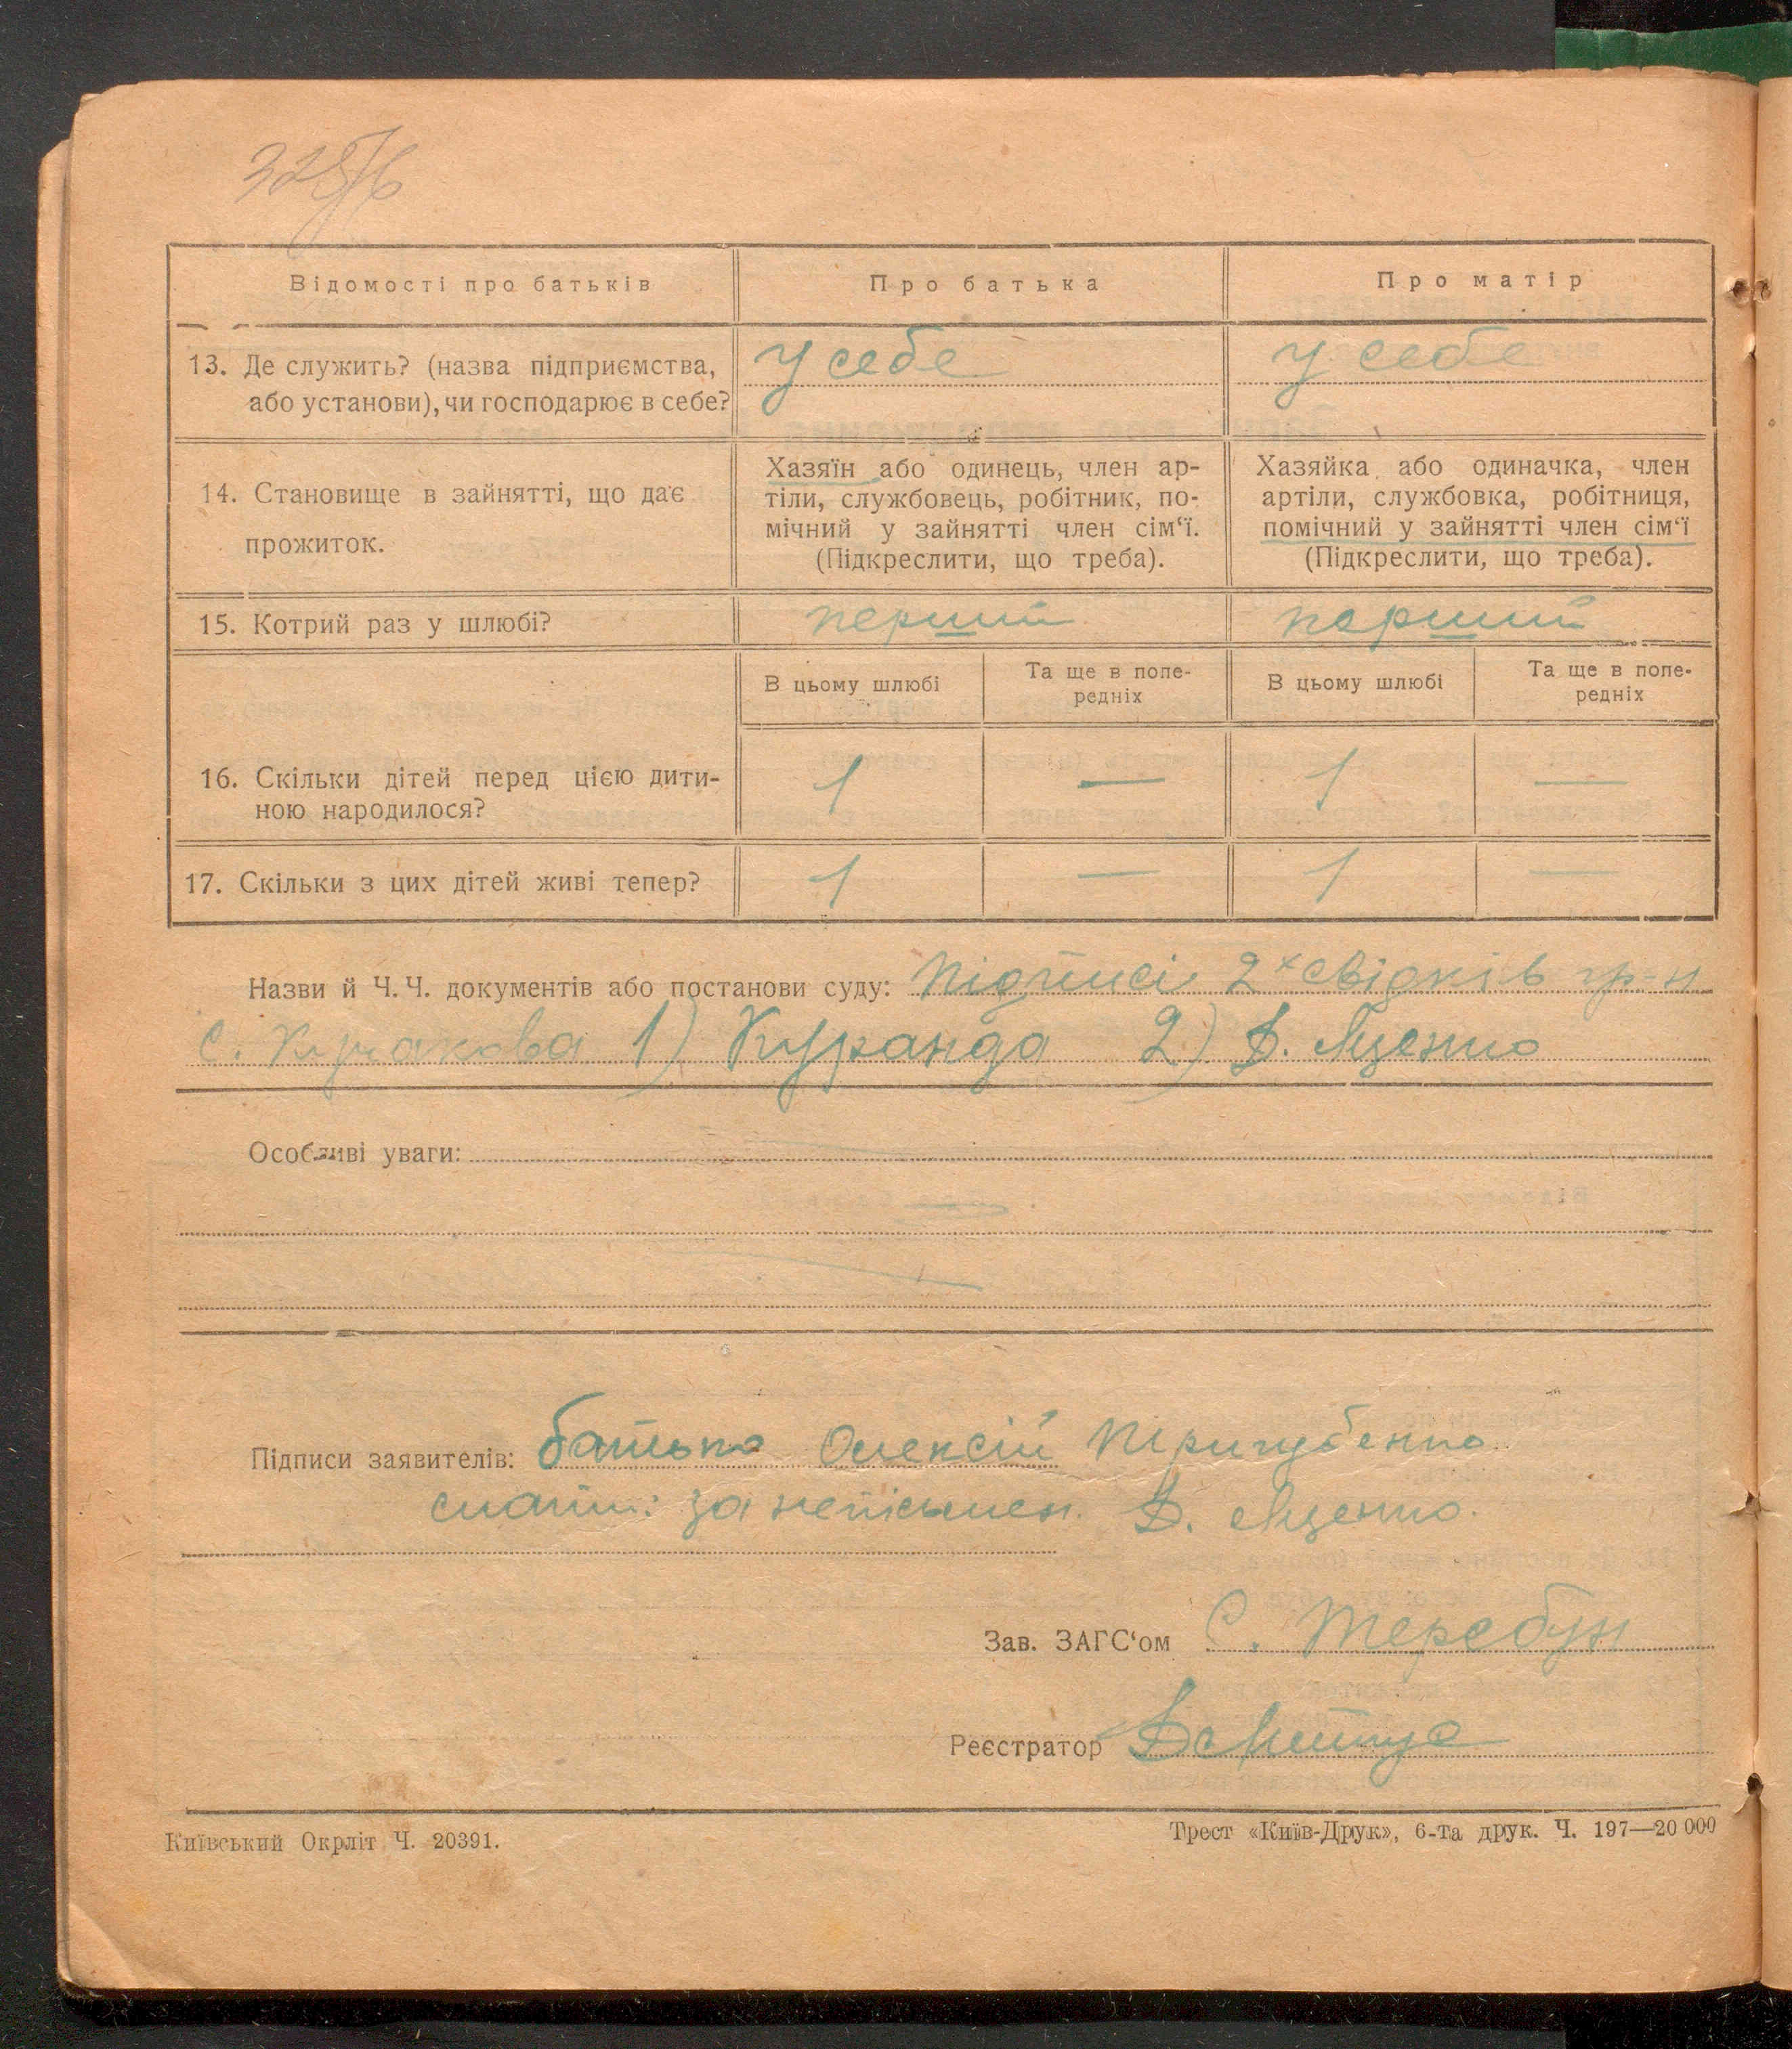 Відомості про батьків
Про батька
Про матір
13. Де служить? (назва підприємства, або установи), чи господарює в себе?
у себе
у себе
14. Становище в зайнятті, що дає прожиток.
Хазяїн або одинець, член ар-
тіли, службовець, робітник, по-
мічний у зайнятті член сім‘ї.
(Підкреслити, що треба).
Хазяйка або одиначка, член
артіли, службовка, робітниця,
помічний у зайнятті член сім‘ї
(Підкреслити, що треба).
15. Котрий раз у шлюбі?
перший
перший
В цьому шлюбі
Та ще в попе-
редніх
В цьому шлюбі
Та ще в попе-
редніх
16. Скільки дітей перед цією дити-
ною народилося?
1 — 1 —
17. Скільки з цих дітей живі тепер?
1 — 1 —
Назви й Ч. Ч. документів або постанови суду: Підписі 2х свідків гр-н
с. 1) Куранда 2) Д. Яценко
Особливі уваги:
Підписи заявителів: батько Олексій
за неписьмен. Д. Яценко.
Зав. ЗАГС‘ом С. Теребун
Реєстратор
Київський Окрліт Ч. 20391.
Трест «Київ-Друк», 6-та друк. Ч. 197—20 000